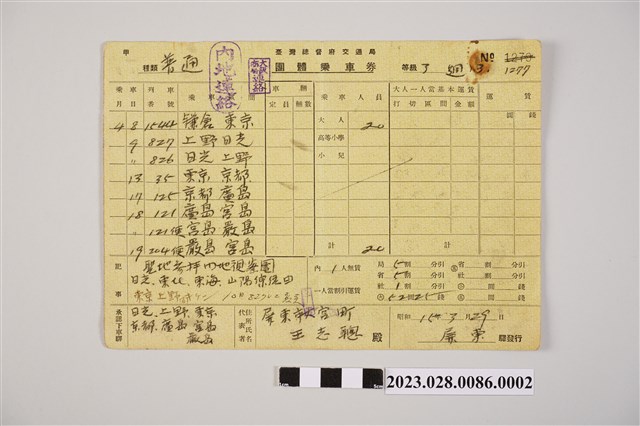 甲 臺灣總督府交通局
種類 普通 內地連絡 團體乘車券 等級 3 № 1270
1277
乘車月日 列車番號 乘車 車種 定員 輛數 乘車人員 大人一人當基本運賃 打切區間 金額 運賃
圓 錢
4 8 1544 鎌倉 東京 大人 20
9 827 上野 日光 高等小學
〃 826 日光 上野 小兒
13 35 東京 京都
17 125 京都 廣島
18 121 廣島 宮島
〃 121 宮島 嚴島
19 204 嚴島 宮島 計 20 計
記事 聖地參拜內地視察團
日光、東北、東海、山陽線經由
內 1 人無賃
一人當割引運賃
局 5 割 分引
省 5 割 分引
社 1 割 分引
省 割 分引
圓 錢
圓 錢
承認下車驛 日光、上野、東京
京都、廣島、宮島
嚴島
代表者 住所氏名 屏東市大宮町
王志聰 殿
昭和 15 3月 29日
屏東 驛發行
2023.028.0086.0002